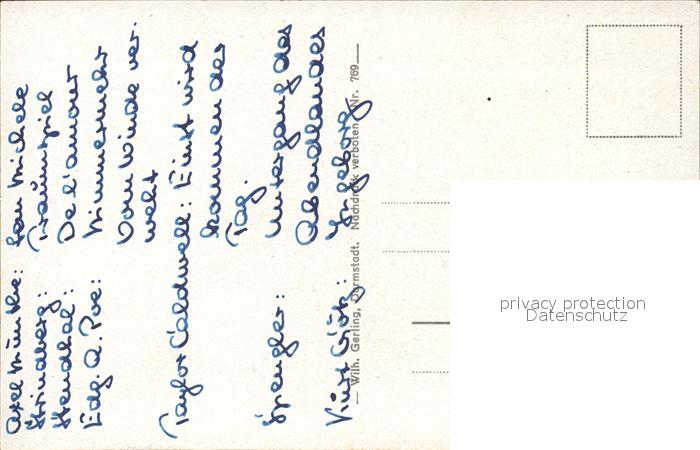 Axel Munthe: San Michele
Strindberg: Traumspiel
Stendhal: De l'amour
Edg. A. Poe: Nimmermehr
Vom Winde ver-
weht
Taylor Caldwell: Einst wird
kommen der
Tag.
Spengler: Untergang des
Abendlandes
Kurt Götz: Ingeborg
Wilh. Gerling, Darmstadt. Nachdruck verboten. Nr. 769
privacy protection
Datenschutz